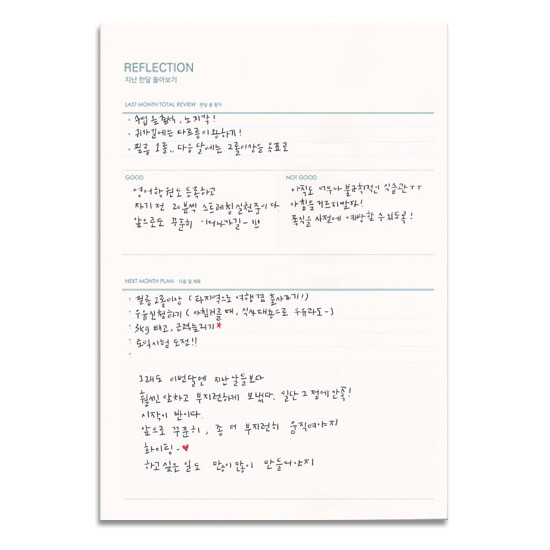 REFLECTION
지난 한달 돌아보기
LAST MONTH TOTAL REVIEW 한달 총 평가
· 수업 올출석, 노지각!
· 귀갓길에는 따릉이 왕하기!
· 필름 1롤.. 다음 달에는 2롤이상을 목표로
GOOD
영어학원도 등록하고
자기 전 20분씩 스트레칭 실천중이다
앞으로도 꾸준히 이어나가길~ !!!
NOT GOOD
아직도 너무나 불규칙적인 식습관ㅜㅜ
아침을 거르지말자!
폭식을 사전에 예방할 수 있도록!
NEXT MONTH PLAN 다음 달 계획
· 필름 2롤이상 (타지역으로 여행 겸 출사가기!)
· 우유신청하기 (아침거를 때, 식사대용으로 우유라도~)
· 3kg 빼고, 근력높히기*
· 토익시험 도전!!
그래도 이번달엔 지난 날들보다
훨씬 알차고 부지런하게 보냈다. 일단 그 점에 만족!
시작이 반이다.
앞으로 꾸준히, 좀 더 부지런히 움직여야지
화이팅~ ♥
하고싶은 일도 많이많이 만들어야지